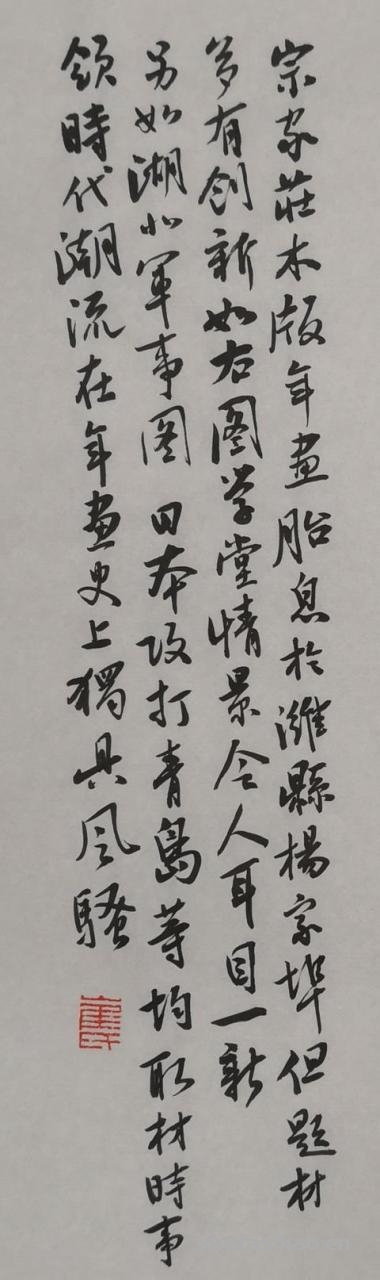 宗家莊木版年畫胎息於濰縣楊家埠但題材
多有创新如右圖学堂情景令人耳目一新
另如湖北軍事图日本攻打青島等均取材時事
領時代潮流在年畫史上獨具风騷